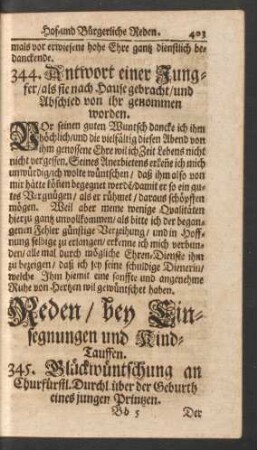 Hof- und Bürgerliche Reden. 403
mals vor erwiesene hohe Ehre gantz dienstlich be-
danckende.
344. Antwort einer Jung-
fer/ als sie nach Hause gebracht/ und
Abschied von ihr genommen
worden.
VOr seinen guten Wuntsch dancke ich ihm
höchlich/ und die vielfältig diesen Abend von
ihm genossene Ehre wil ich Zeit Lebens nicht
nicht vergessen. Seines Anerbietens erkeñe ich mich
unwürdig/ ich wolte wüntschen/ daß ihm also von
mir hätte köñen begegnet werdẽ/ damit er so ein gu-
tes Vergnügen/ als er rühmet/ daraus schöpffen
mögen. Weil aber meine wenige Qualitäten
hierzu gantz unvollkommen/ als bitte ich der began-
genen Fehler günstige Verzeihung/ und in Hoff-
nung selbige zu erlangen/ erkenne ich mich verbun-
den/ alle mal durch mögliche Ehren-Dienste ihm
zu bezeigen/ daß ich sey seine schuldige Dienerin/
welche Ihn hiemit eine sanffte und angenehme
Ruhe von Hertzen wil gewüntschet haben.
Reden/ bey Ein-
segnungen und Kind-
Tauffen.
345. Glückwüntschung an
Churfürstl. Durchl. über der Geburth
eines jungen Printzen.
Bb 5 Der